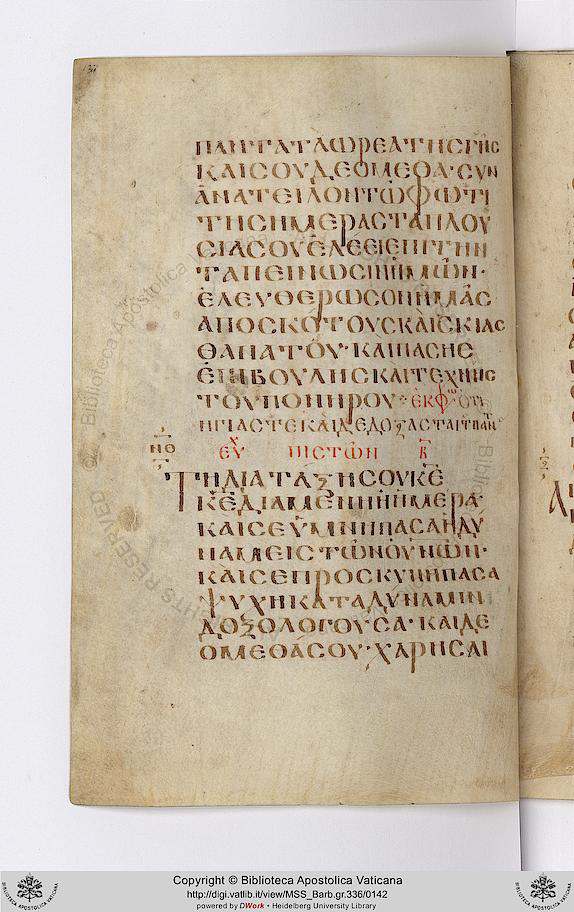 ΠΑΝΤΑΤΑΩΡΕΑΤΗΣΓΗΣ
ΚΑΙΣΟΥΔΕΟΜΕΘΑ·ΣΥΝ
ΑΝΑΤΕΙΛΟΝΤΩΦΩΤΙ
ΤΗΣΗΜΕΡΑΣΤΑΠΛΟΥ
ΣΙΑΣΟΥΕΛΕΕΙΕΠΙΤΗΝ
ΤΑΠΕΙΝΩΣΙΝΗΜΩΝ·
ΕΛΕΥΘΕΡΩΣΟΝΗΜΑΣ
ΑΠΟΣΚΟΤΟΥΣΚΑΙΣΚΙΑΣ
ΘΑΝΑΤΟΥ·ΚΑΙΠΑΣΗΣ
ΕΠΙΒΟΥΛΗΣΚΑΙΤΕΧΝΗΣ
ΤΟΥΠΟΝΗΡΟΥ ΕΚΦ ΟΤΙ
ΗΓΙΑΣΤΕΚΑΙΔΕΔΟΞΑΣΤΑΙΤΠΑΝ
ΕΥΧ ΠΙΣΤΩΝ Β
ΝΘ
ΤΗΔΙΑΤΑΞΗΣΟΥΚΕ
ΚΕΔΙΑΜΕΝΗΗΗΜΕΡΑ
ΚΑΙΣΕΥΜΝΗΠΑΣΑΗΔΥ
ΝΑΜΕΙΣΤΩΝΟΥΝΩΝ·
ΚΑΙΣΕΠΡΟΣΚΥΝΗΠΑΣΑ
ΨΥΧΗΚΑΤΑΔΥΝΑΜΙΝ
ΔΟΞΟΛΟΓΟΥΣΑ·ΚΑΙΔΕ
ΟΜΕΘΑΣΟΥ·ΧΑΡΗΣΑΙ
Copyright © Biblioteca Apostolica Vaticana
http://digi.vatlib.it/view/MSS_Barb.gr.336/0142
powered by DWork • Heidelberg University Library